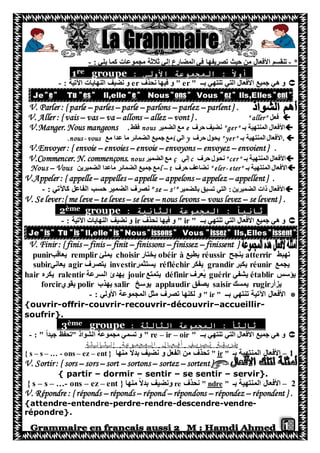 La Grammaire
* - تنقسم الأفعال من حيث تصريفها فى المضارع إلى ثلاثة مجموعات كما يلى : -
أولاً : المجموعة الأولى : 1ère groupe
و هى جميع الأفعال التى تنتهى بــ " er " و فيها نحذف er و نضيف النهايات الآتية : -
Je ˮeˮ Tu ˮesˮ Il,elle ˮeˮ Nous ˮonsˮ Vous ˮezˮ Ils,Elles ˮentˮ
V. Parler : { parle – parles – parle – parlons – parlez – parlent } .
أهم الشواذ
فعل "aller"
V. Aller : { vais – vas – va – allons – allez – vont } .
الأفعال المنتهية بـ "ger" نضيف حرف e مع الضمير nous فقط.
V.Manger. Nous mangeons
الأفعال المنتهية بـ "yer" يحول حرف y إلى i مع جميع الضمائر ما عدا مع nous - vous.
V.Envoyer : { envoie – envoies – envoie – envoyons – envoyez – envoient } .
الأفعال المنتهية بـ "cer" نحول حرف c إلى ç مع الضمير nous
V.Commencer. N. commençons.
الأفعال المنتهية بـ "eler- eter" تضاعف حرف t – l مع جميع الضمائر ماعدا الضميرين Nous – Vous
V.Appeler : { appelle – appelles – appelle – appelons – appelez – appellent } .
الأفعال ذات الضميرين : التى تسبق بالضمير "se – s'" نصرف الضمير حسب الفاعل كالآتى : -
V. Se lever:{ me leve – te leves – se leve – nous levons – vous levez – se levent } .
ثانياً : المجموعة الثانية : 2ème groupe
و هى جميع الأفعال التى تنتهى بــ " ir " و فيها نحذف ir و نضيف النهايات الآتية : -
Je ˮisˮ Tu ˮisˮ Il,elle ˮisˮ Nous ˮissonsˮ Vous ˮissezˮ Ils,Elles ˮissentˮ
V. Finir : { finis – finis – finit – finissons – finissez – finissent }
أمثلة لأفعال هذه المجموعة /
punir يعاقب remplir يملئ choisir يختار obéir يطيع réussir ينجح atterrir تهبط
subir يعانى agir يتصرف investir يستثمر réfléchir يفكر grandir يكبر réunir يجمع
hair يكره ralentir يهدئ السرعة jouir يتمتع définir يعرف guérir يشفى établir يؤسس
forcir يقوى polir يهذب salir يوسخ applaudir يصفق saisir يمسك rugir يزأر
الأفعال الآتية تنتهى بـ " ir " و لكنها تصرف مثل المجموعة الأولى : -
{ouvrir–offrir–couvrir–recouvrir–découvrir–accueillir–soufrir}.
ثالثاً : المجموعة الثالثة : 3ème groupe
و هى جميع الأفعال التى تنتهى بــ " re – ir – oir " و تسمى مجموعة الشواذ "تحفظ جيداً " : -
1 – الأفعال المنتهية بـ " ir " تحذف من الفعل و نضيف بدلاً منها { s – s – … - ons – ez – ent }
V. Sortir : { sors – sors – sort – sortons – sortez – sortent }
{ partir – dormir – sentir – se sentir – servir}.
2 – الأفعال المنتهية بـ " ndre " تحذف re ونضيف بدلاً منها { s – s – …- ons – ez – ent }
V. Répondre : { réponds – réponds – répond – répondons – répondez – répondent } .
{attendre-entendre-perdre-rendre-descendre-vendre-répondre}.
Grammaire en français aussi 2 M : Hamdi Ahmed 1